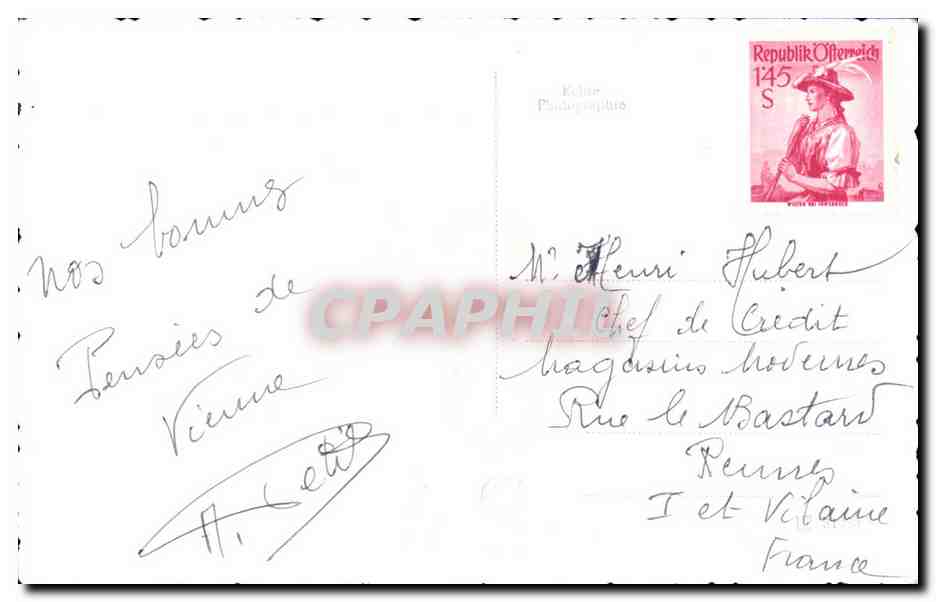 Republik Österreich
1'45
S
WILTEN BEI INNSBRUCK
Echte
Photographie
nos bonnes
Pensées de
Vienne
A. Petit
Mr Henri Hubert
Chef de Crédit
Magasins Modernes
Rue le Bastard
Rennes
I et Vilaine
France
CPAPHIL